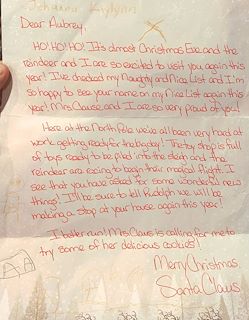 Johanna
Dear Aubrey,
HO! HO! HO! It's almost Christmas Eve and the
reindeer and I are so excited to visit you again this
year! I've checked my Naughty and Nice List and I'm
so happy to see your name on my Nice List again this
year! Mrs. Clause and I are so very proud of you!
Here at the North Pole we've all been very hard at
work getting ready for the big day! The toy shop is full
of toys ready to be piled into the sleigh and the
reindeer are racing to begin their magical flight. I
see that you have asked for some wonderful new
things! I'll be sure to tell Rudolph we will be
making a stop at your house again this year!
I better run! Mrs. Claus is calling for me to
try some of her delicious cookies!
Merry Christmas
Santa Claus